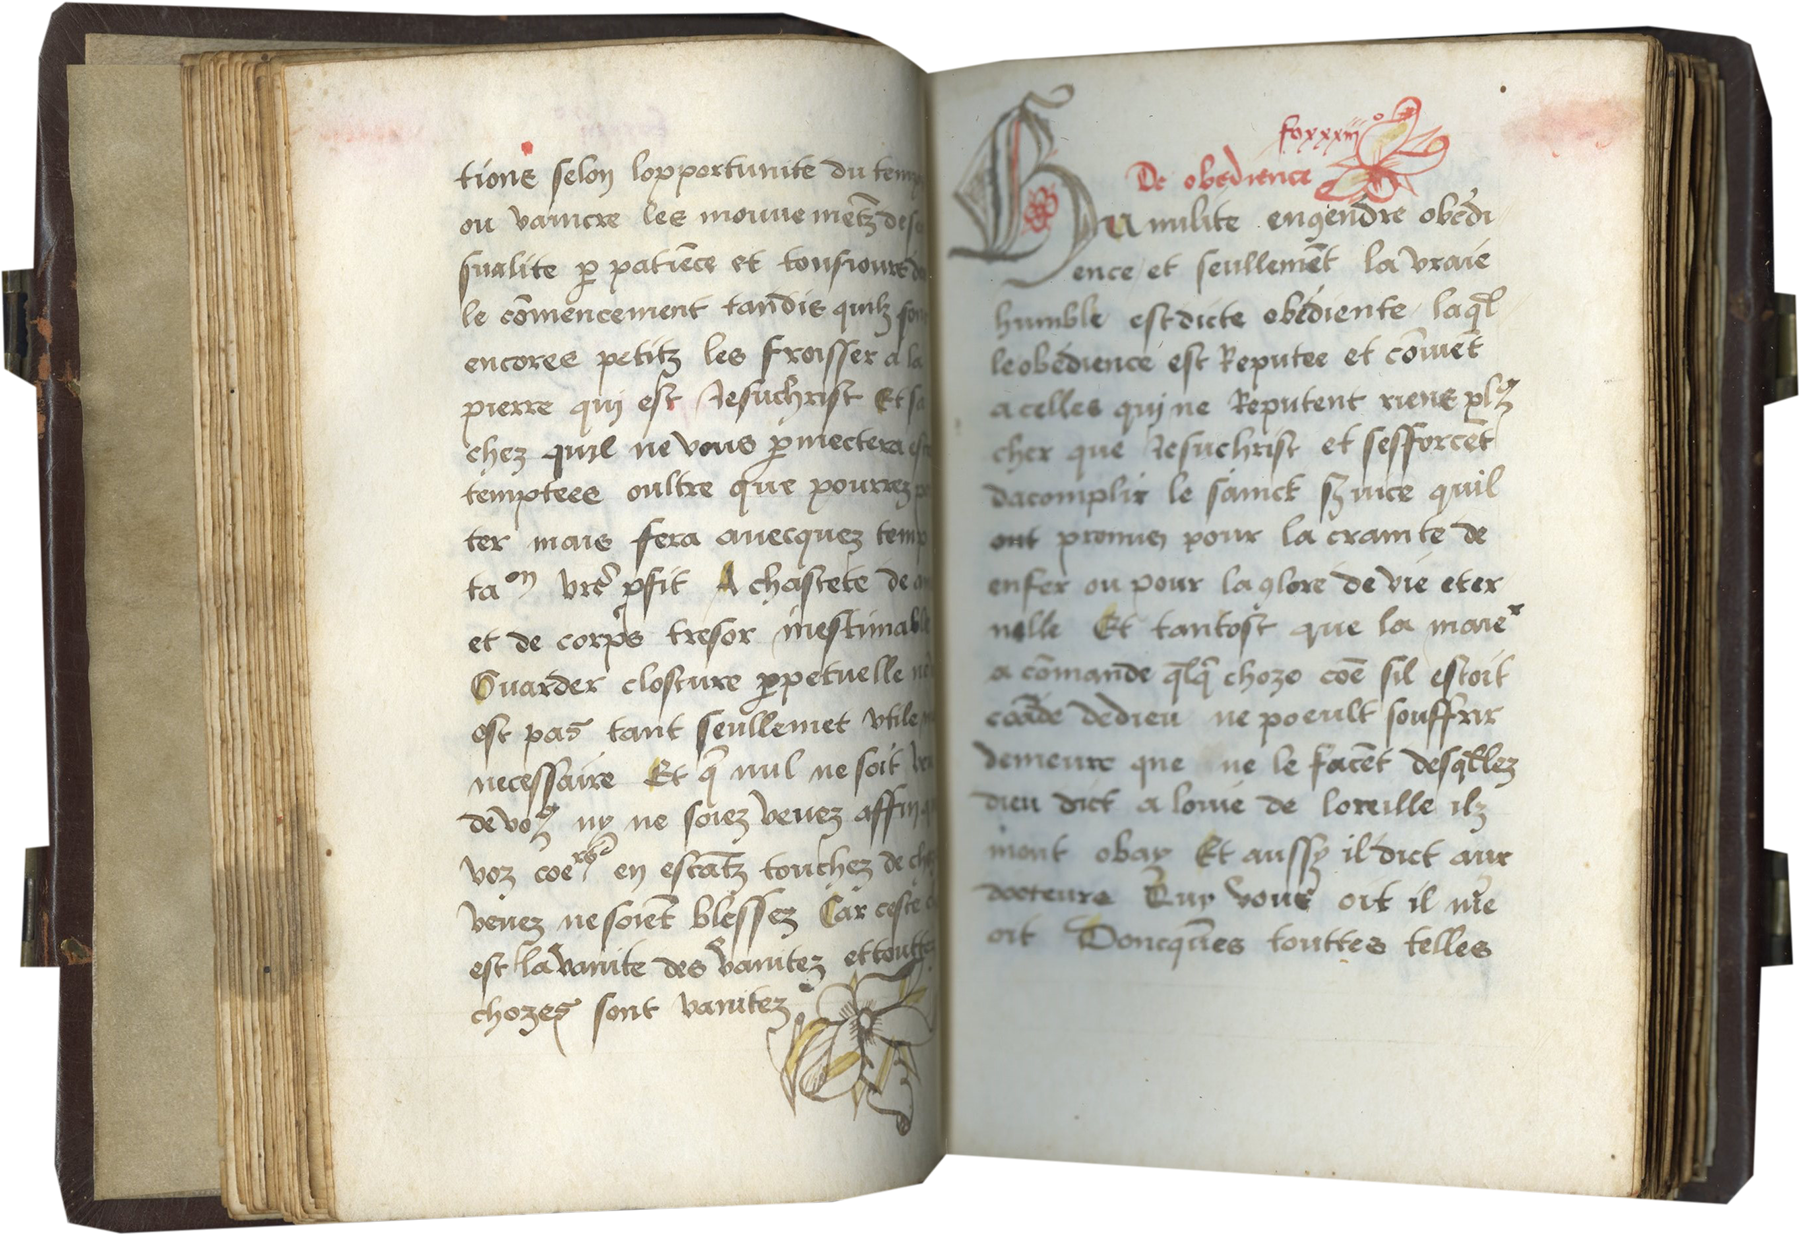 tions selon lopportunite du temp
ou vaincre les mouuemētz de se
sualite p̱ patiēce et tousiours
le cōmencement tandis quilz sont
encores petitz les froisser a la
pierre qui est Jesuchrist Et sa
chez quil ne vous p̱mectera
temptees oultre que pourrez
ter mais fera auecquez temp
taon vr̄e p̱fit A chastete de
et de corps tresor inestimable
Guarder closture p̱petuelle
est pas tant seullemet vtile
necessaire Et q̄ nul ne soit
de voꝰ ny ne soiez veuez affin
voz coe en estatz touchez de
veuez ne soiēt blessez Car ceste
est la vanite des vanitez et touttes
chozes sont vanitez
foxxxiii o
De obedience
Humilite engendre obedi
ence et seullemēt la vraie
humble est dicte obediente laq̄l
le obedience est Reputee et cōuiēt
a celles qui ne Reputent riens plꝰ
cher que Jesuchrist et sefforcēt
dacomplir le sainct s̄uice quil
ont promis pour la crainte de
enfer ou pour la glore de vie eter
nelle Et tantost que la maier
a cōmande q̄lq̄ choze coē sil estoit
cōāde de dieu ne poeult souffrir
demeure que ne le facēt desq̄llez
dieu dict a louie de loreille ilz
mont obay Et aussy il dict aux
docteurs Quy vous oit il me
oit Doncques touttes telles